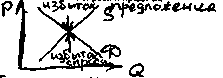 P
избыток предложения
S
избыток
спроса
D
Q